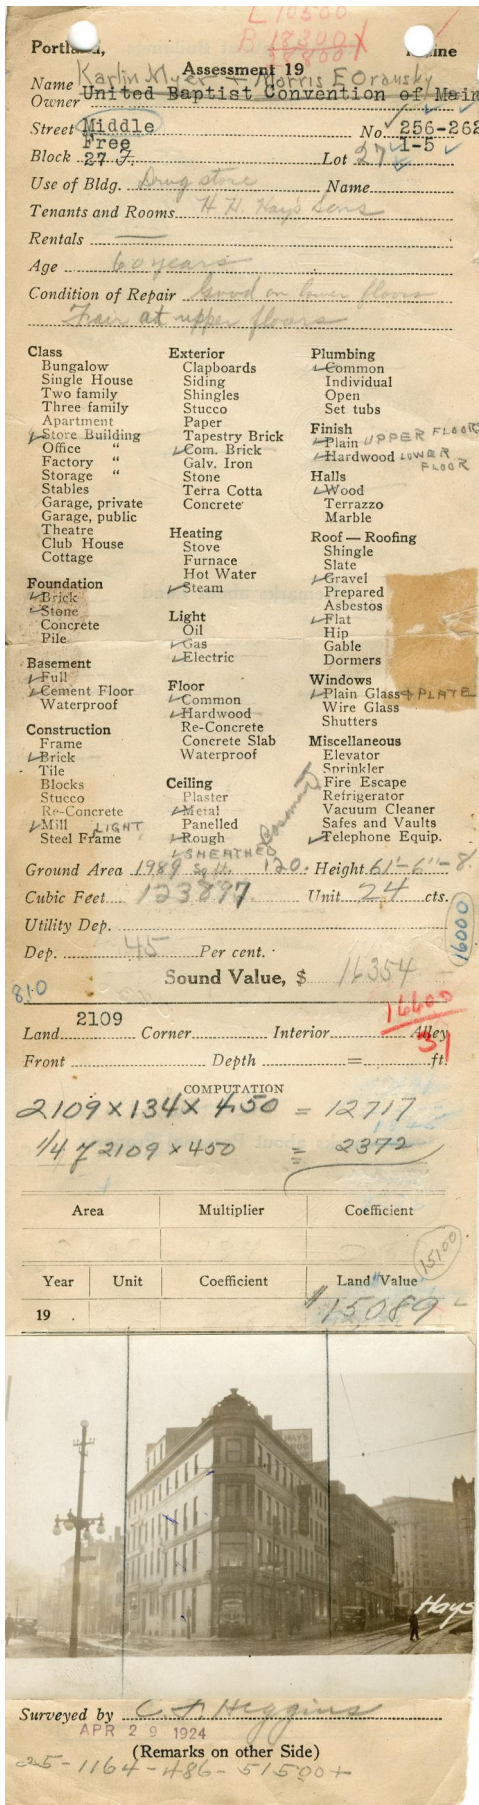 L 10500
B 18300
28800
Portland, Maine
Assessment 19
Karlin Myer + Morris E Oransky
Name United Baptist Convention of Main
Owner
Street Middle No. 256-262
Free 1-5
Block 27 F. Lot 27
Use of Bldg. Drug store Name
Tenants and Rooms H. H. Hay's Sons
Rentals —
Age 60 years
Condition of Repair Good on lower floors
Fair at upper floors
Class
Bungalow
Single House
Two family
Three family
Apartment
Store Building
Office "
Factory "
Storage "
Stables
Garage, private
Garage, public
Theatre
Club House
Cottage
Foundation
Brick
Stone
Concrete
Pile
Basement
Full
Cement Floor
Waterproof
Construction
Frame
Brick
Tile
Blocks
Stucco
Re-Concrete
Mill LIGHT
Steel Frame
Exterior
Clapboards
Siding
Shingles
Stucco
Paper
Tapestry Brick
Com. Brick
Galv. Iron
Stone
Terra Cotta
Concrete
Heating
Stove
Furnace
Hot Water
Steam
Light
Oil
Gas
Electric
Floor
Common
Hardwood
Re-Concrete
Concrete Slab
Waterproof
Ceiling
Plaster
Metal
Panelled
Rough Basement
SHEATHED
Plumbing
Common
Individual
Open
Set tubs
Finish
Plain UPPER FLOOR
Hardwood LOWER FLOOR
Halls
Wood
Terrazzo
Marble
Roof — Roofing
Shingle
Slate
Gravel
Prepared
Asbestos
Flat
Hip
Gable
Dormers
Windows
Plain Glass + PLATE
Wire Glass
Shutters
Miscellaneous
Elevator
Sprinkler
Fire Escape
Refrigerator
Vacuum Cleaner
Safes and Vaults
Telephone Equip.
Ground Area 1989 sq ft. 120. Height 61'-6"-8
Cubic Feet 123897 Unit 24 cts.
Utility Dep.
16000
Dep. 45 Per cent.
Sound Value, $ 16354
810
16600
2109
Land Corner Interior Alley
31
Front Depth = ft.
COMPUTATION
2109 x 134 x 450 = 12717
1/4 of 2109 x 450 = 2372
Area Multiplier Coefficient
15100
Year Unit Coefficient Land Value
19 $15089
HAY'S
DRUG
Hays
Surveyed by C. F. Heggins
APR 29 1924
(Remarks on other Side)
25-1164-486-51500+